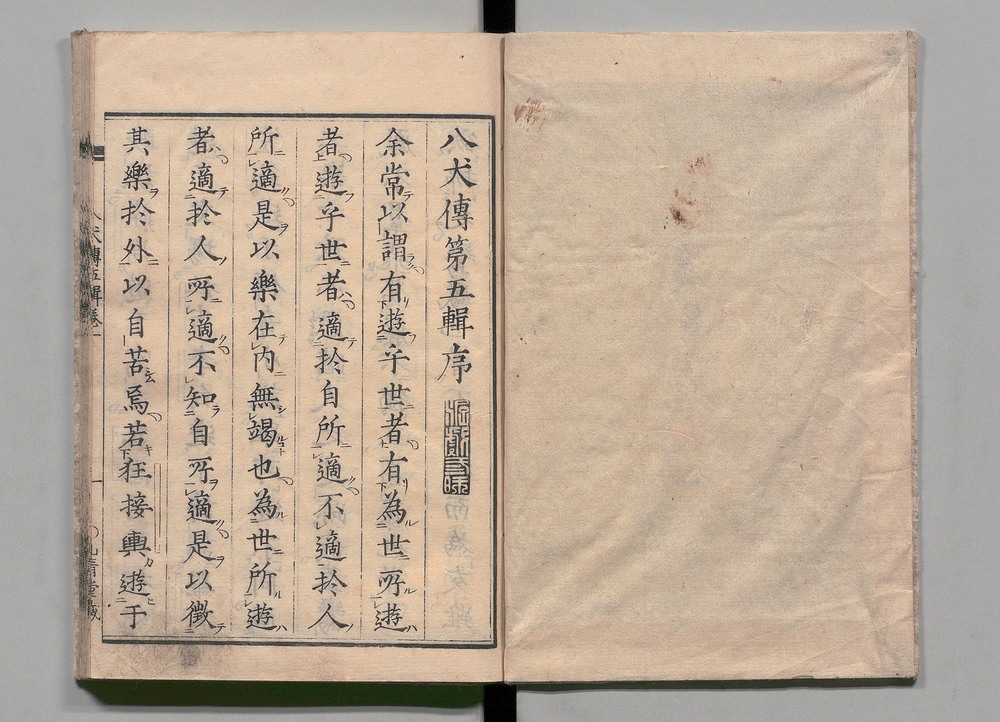 八犬傳第五輯序
余常以謂有遊乎世者有為世所遊
者遊乎世者適於自所適不適於人
所適是以樂在内無竭也為世所遊
者適於人所適不知自所適是以徵
其樂於外以自苦焉若狂接輿遊于
八犬傳五輯卷一